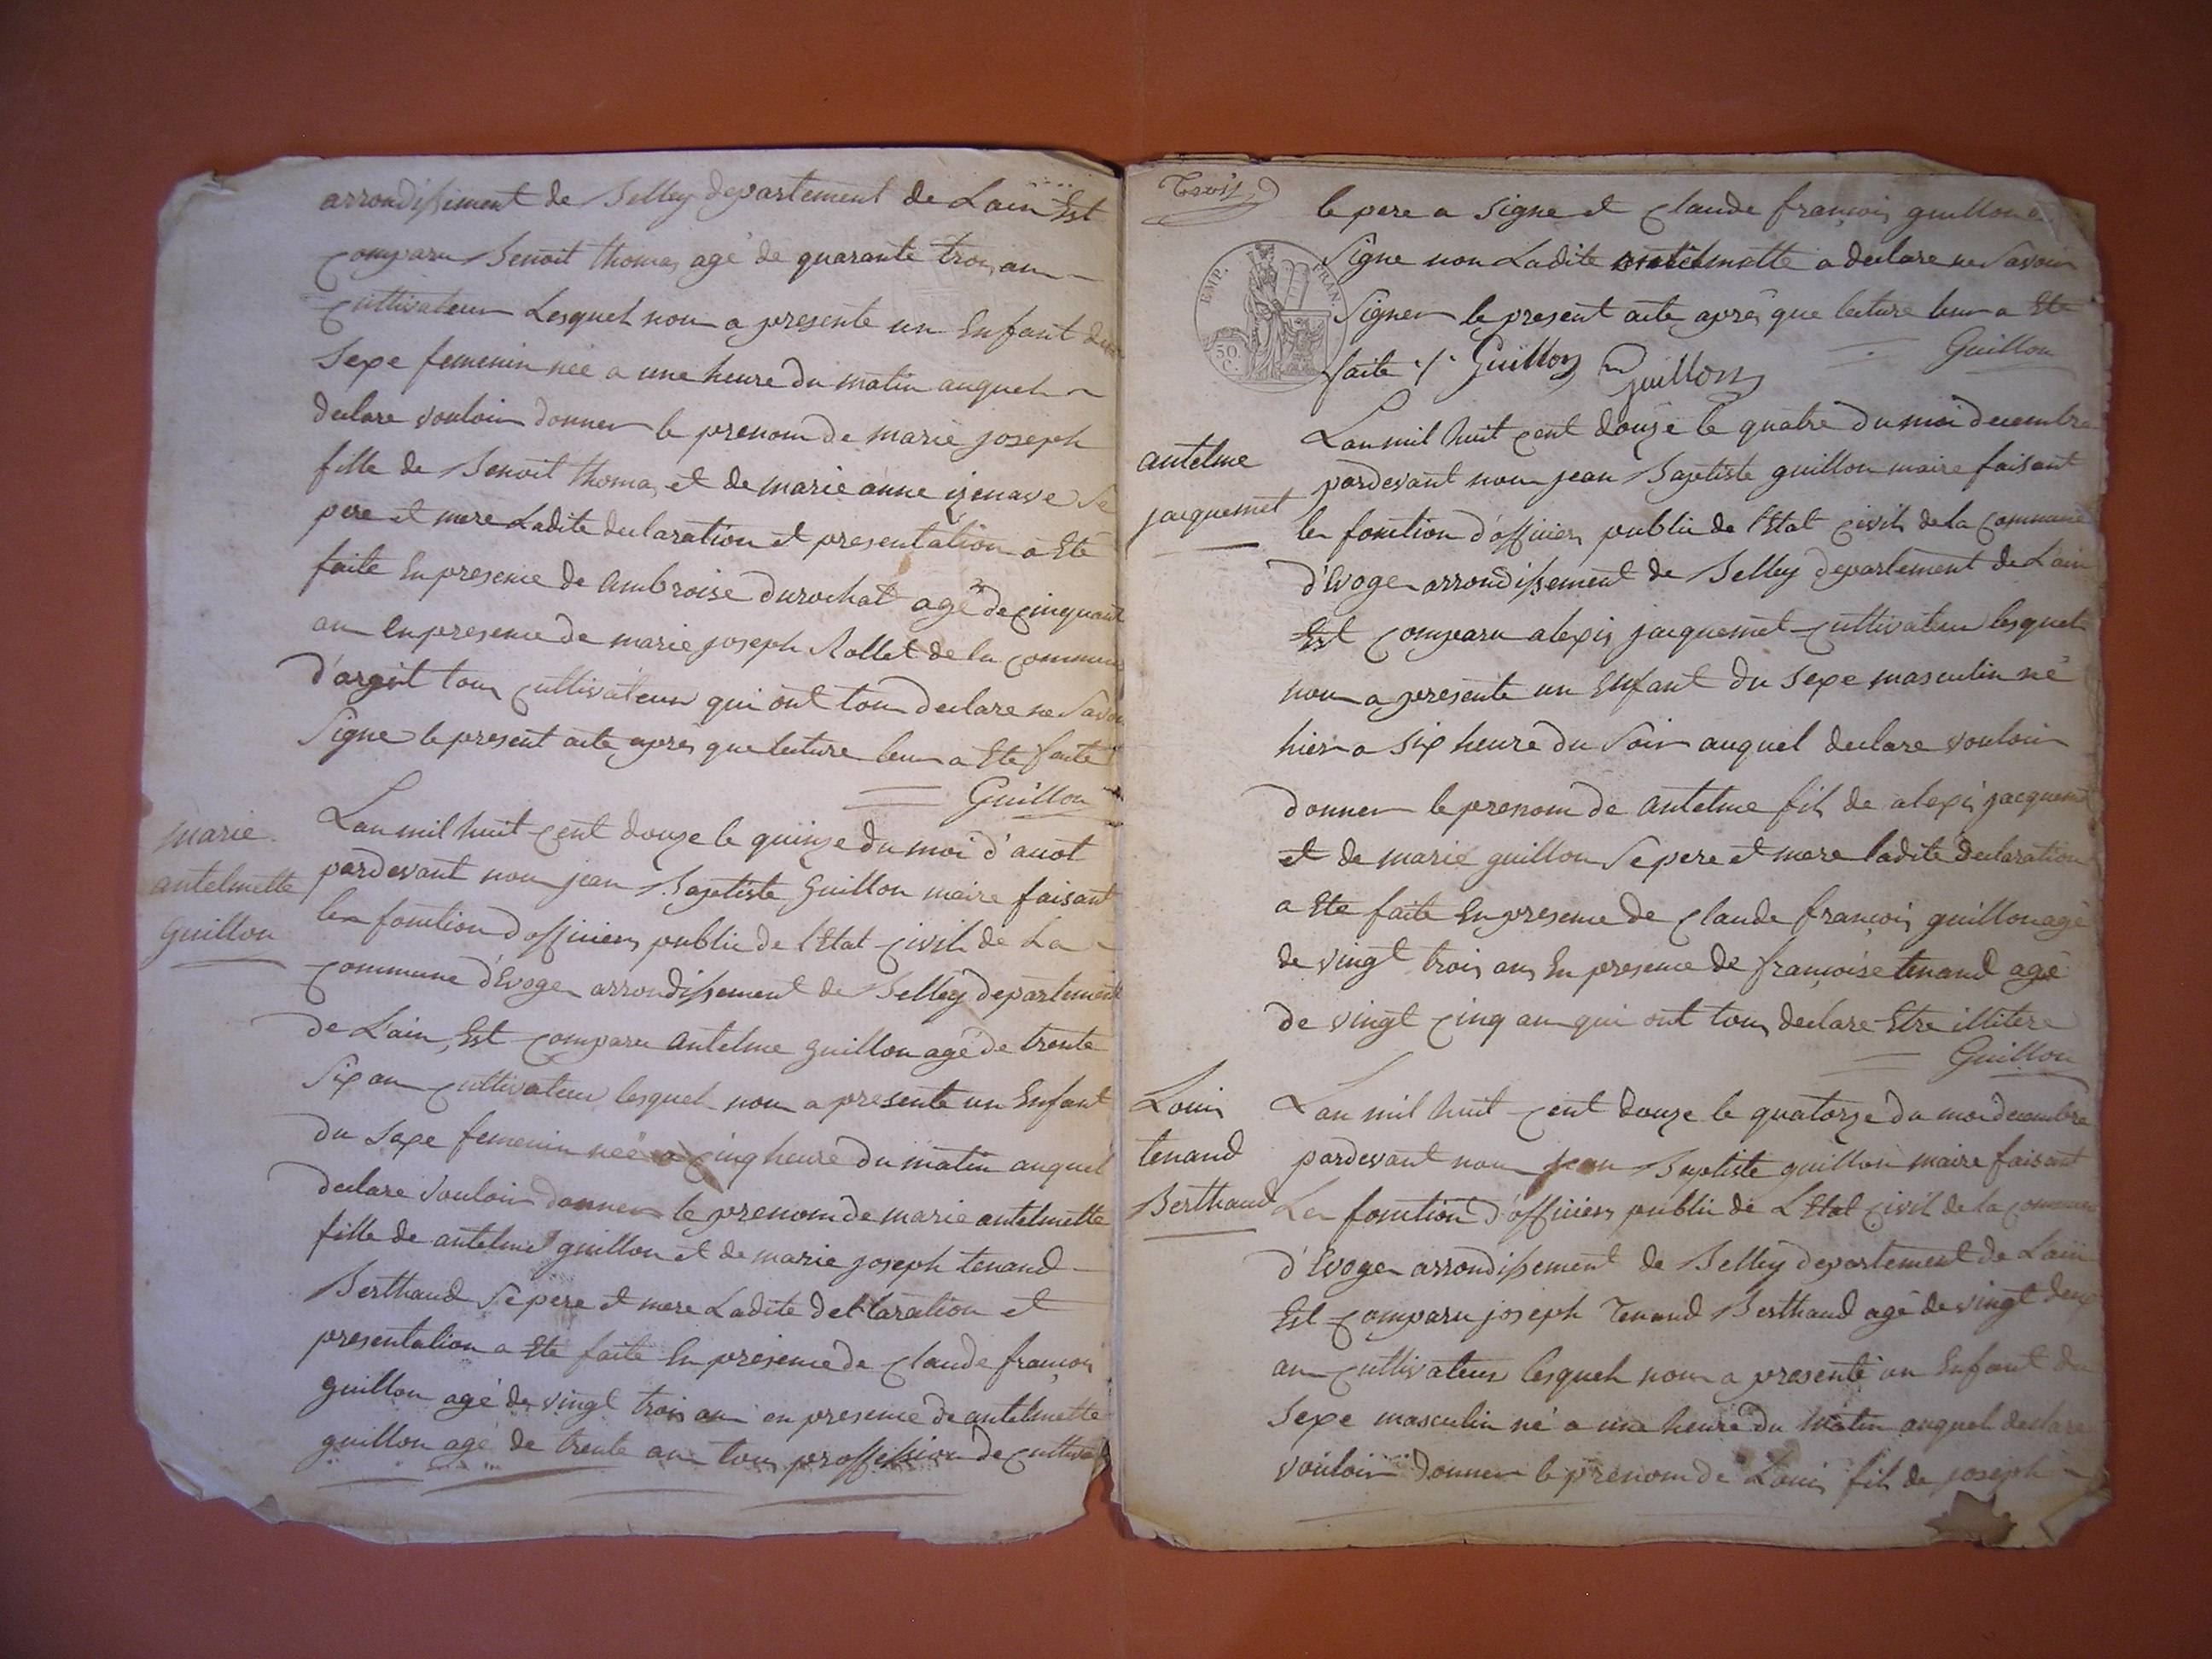 arrondissiment de Belley departement de Lain Est
comparu Benoit thomas agé de quarante trois an
cultivateur Lesquel nou a presente un Enfant du
Sexe femenin née a une heure du matin auquel
declare vouloir donner le prenom de marie joseph
fille de Benoit thomas et de marie anne izenave Se
pere et mere Ladite declaration et presentation a Eté
faite En presence de ambroise durochat agé de cinquant
an En presence de marie joseph Rollet de la commun
d'argit tous cultivateur qui ont tou declare ne Savoi
Signe le present acte apres que lecture leur a Ete faite
Guillon
marie
antelmette
Guillon
Lan mil huit cent douze le quinze du moi d'auot
pardevant nou jean Baptiste Guillon maire faisant
les fonction d'officier public de l'Etat civil de La
commune d'Evoge arrondissement de Belley departement
de L'ain, Est comparu antelme guillon agé de trente
Six an cultivateur lesquel nou a presente un Enfant
du Sexe femenin neé a cinq heure du matin auquel
declare vouloir donner le prenom de marie antelmette
fille de antelme guillon et de marie joseph tenand
Berthaud Se pere et mere Ladite declaration et
presentation a Ete faite En presence de claude francois
guillon agé de vingt trois an en presence de antelmette
guillon agé de trente an tous proffession de cultivat
le pere a Signe et claude françois guillon a
Signe non Ladite antelmette a declare ne Savoir
Signer le present acte apres que lecture leur a Ete
faite ./. Guillon Guillon Guillon
EMP. FRAN.
50 C.
antelme
jacquemet
Lan mil huit cent douze le quatre du moi decembre
pardevant nou jean Baptiste guillon maire faisant
les fonction d'officier public de l'Etat civil de la commune
d'Evoge arrondissement de Belley departement de Lain
Est comparu alexis jacquemet cultivateur lesquel
nou a presente un Enfant du Sexe masculin né
hier a six heure du Soir auquel declare vouloir
donner le prenom de antelme fils de alexis jacquemet
et de marie guillon Se pere et mere ladite declaration
a Ete faite En presence de claude françois guillon agé
de vingt trois ans En presence de françoise tenand agé
de vingt cinq an qui ont tous declare Etre illitere
Guillon
Louis
tenand
Berthaud
Lan mil huit cent douze le quatorze du moi decembre
pardevant nou jean Baptiste guillon maire faisant
Les fonction d'officier public de L'Etat civil de la commun
d'Evoge arrondissement de Belley departement de Lain
Est comparu joseph Tenand Berthaud agé de vingt deux
an cultivateur lesquel nou a presenté un Enfant du
Sexe masculin né a une heure du matin auquel declare
vouloir donner le prenom de Louis fils de joseph